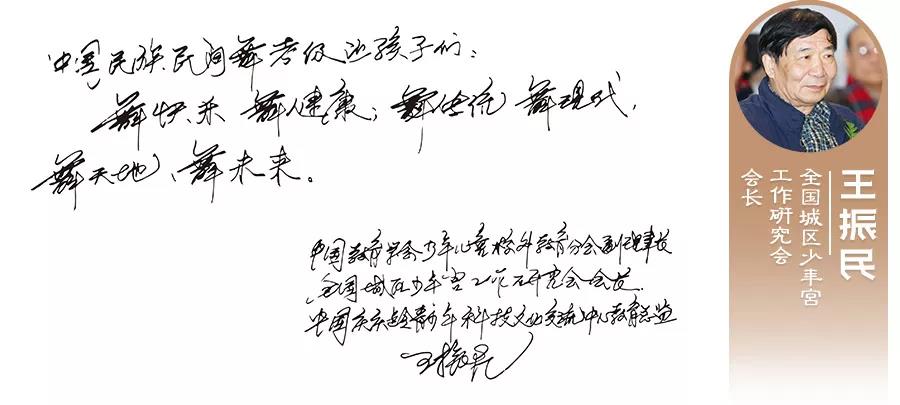 中国民族民间舞考级让孩子们：
舞快乐 舞健康；舞传统 舞现代，
舞天地、舞未来。
中国教育学会少年儿童校外教育分会副理事长
全国城区少年宫工作研究会会长
中国宋庆龄青少年科技文化交流中心教育总监
王振民
王振民
全国城区少年宫
工作研究会
会长